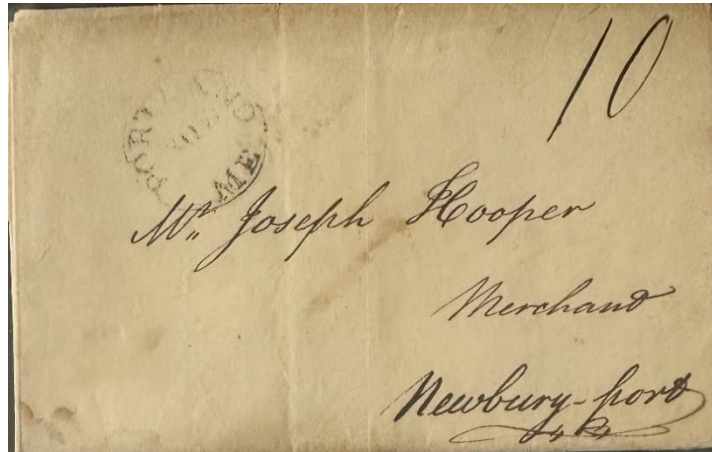 10
PORTLAND
ME
Mr. Joseph Hooper
Merchant
Newbury-port